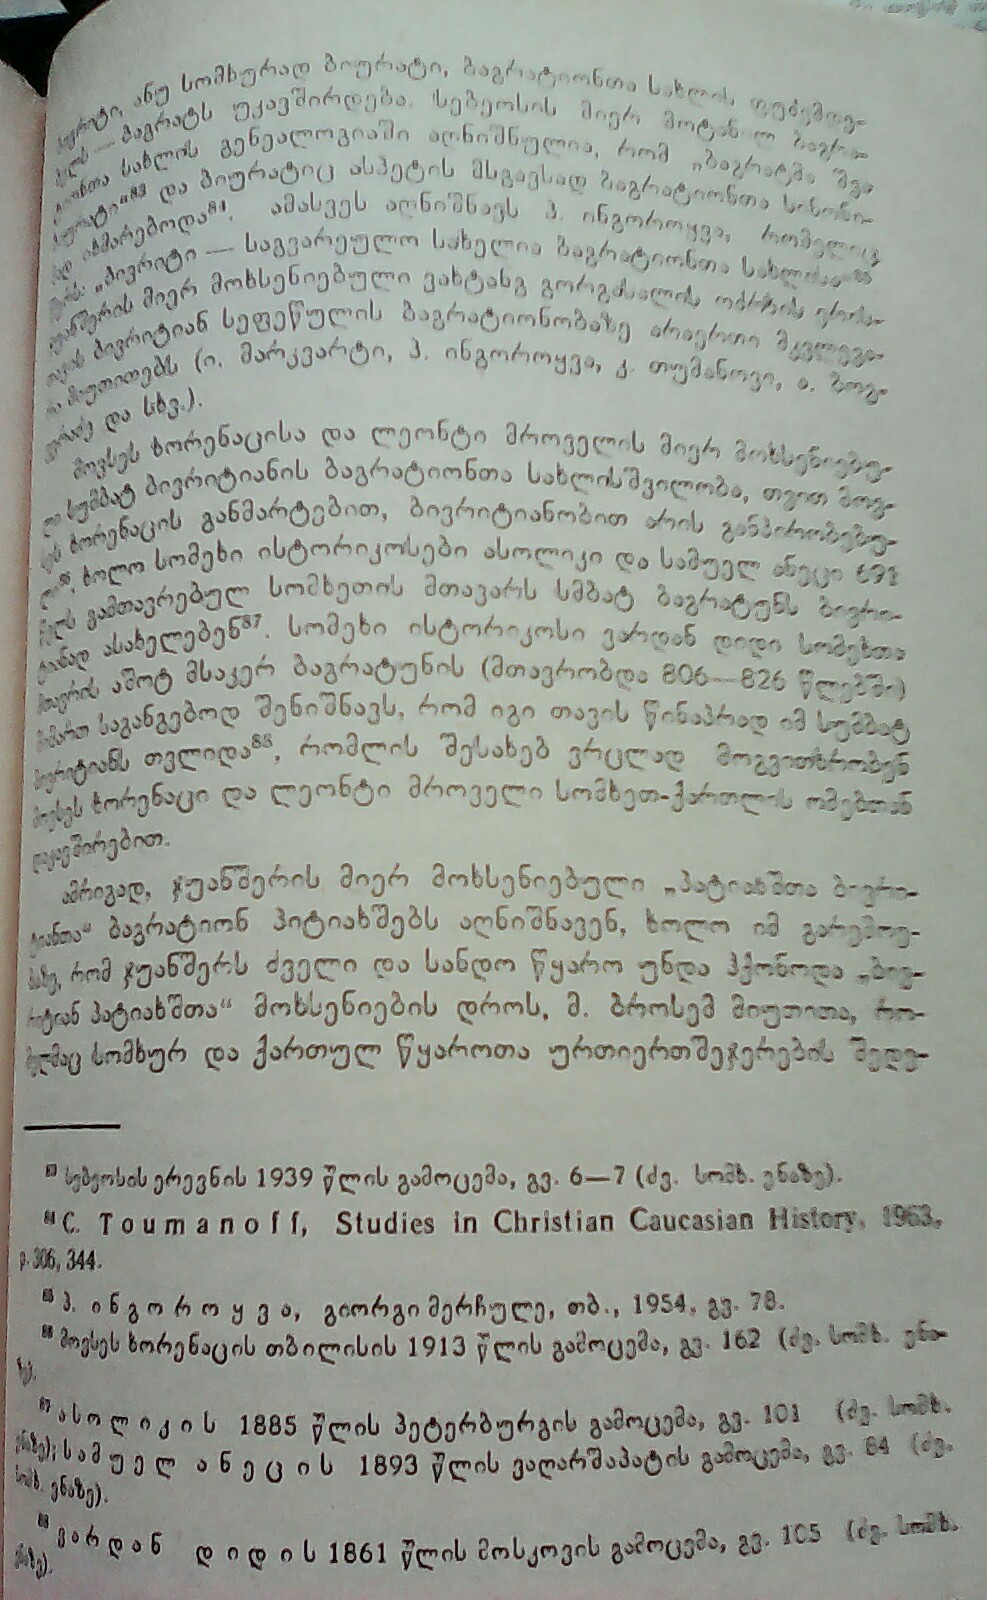 ბიურიტი, ანუ სომხურად ბიურატი, ბაგრატიონთა სახლის ფუძემდე-
ბელს — ბაგრატს უკავშირდება. სებეოსის მიერ მოტანილ ბაგრა-
ტიონთა სახლის გენეალოგიაში აღნიშნულია, რომ „ბაგრატმა შვა
ბიურატი“⁸³ და ბიურატიც ასპეტის მსგავსად ბაგრატიონთა სინონი-
მად იხმარებოდა⁸⁴. ამასვეს აღნიშნავს პ. ინგოროყვა, რომელიც
წერს: „ბივრიტი — საგვარეულო სახელია ბაგრატიონთა სახლისა“⁸⁵.
ჯუანშერის მიერ მოხსენიებული ვახტანგ გორგასლის დროის
ბივრიტიან სეფეწულის ბაგრატიონობაზე არაერთი მკვლევა-
რი მიუთითებს (ი. მარკვარტი, პ. ინგოროყვა, კ. თუმანოვი, ა. ბოგ-
ვერაძე და სხვ.).
მოვსეს ხორენაცისა და ლეონტი მროველის მიერ მოხსენიებუ-
ლი სუმბატ ბივრიტიანის ბაგრატიონთა სახლისშვილობა, თვით მოვ-
სეს ხორენაცის განმარტებით, ბივრიტიანობით არის განპირობებუ-
ლი⁸⁶, ხოლო სომეხი ისტორიკოსები ასოლიკი და სამუელ ანეცი 693
წელს გამთავრებულ სომხეთის მთავარს სმბატ ბაგრატუნს ბივრი-
ტიანად ასახელებენ⁸⁷. სომეხი ისტორიკოსი ვარდან დიდი სომეხთა
მთავრის აშოტ მსაკერ ბაგრატუნის (მთავრობდა 806—826 წლებში)
მიმართ საგანგებოდ შენიშნავს, რომ იგი თავის წინაპრად იმ სუმბატ
ბივრიტიანს თვლიდა⁸⁸, რომლის შესახებ ვრცლად მოგვითხრობენ
მოვსეს ხორენაცი და ლეონტი მროველი სომხეთ-ქართლის ომებთან
დაკავშირებით.
ამრიგად, ჯუანშერის მიერ მოხსენიებული „პატიახშთა ბივრი-
ტიანთა“ ბაგრატიონ პიტიახშებს აღნიშნავენ, ხოლო იმ გარემოე-
ბაზე, რომ ჯუანშერს ძველი და სანდო წყარო უნდა ჰქონოდა „ბივ-
რიტიან პატიახშთა“ მოხსენიების დროს, მ. ბროსემ მიუთითა, რო-
მელმაც სომხურ და ქართულ წყაროთა ურთიერთშეჯერების შედე-
⁸³ სებეოსის ერევნის 1939 წლის გამოცემა, გვ. 6—7 (ძვ. სომხ. ენაზე).
⁸⁴ C. Toumanoff, Studies in Christian Caucasian History, 1963,
p. 306, 344.
⁸⁵ პ. ინგოროყვა, გიორგი მერჩულე, თბ., 1954, გვ. 78.
⁸⁶ მოვსეს ხორენაცის თბილისის 1913 წლის გამოცემა, გვ. 162 (ძვ. სომხ. ენა-
ზე).
⁸⁷ ასოლიკის 1885 წლის პეტერბურგის გამოცემა, გვ. 101 (ძვ. სომხ.
ენაზე); სამუელ ანეცის 1893 წლის ვაღარშაპატის გამოცემა, გვ. 84 (ძვ.
სომხ. ენაზე).
⁸⁸ ვარდან დიდის 1861 წლის მოსკოვის გამოცემა, გვ. 105 (ძვ. სომხ.
ენაზე).